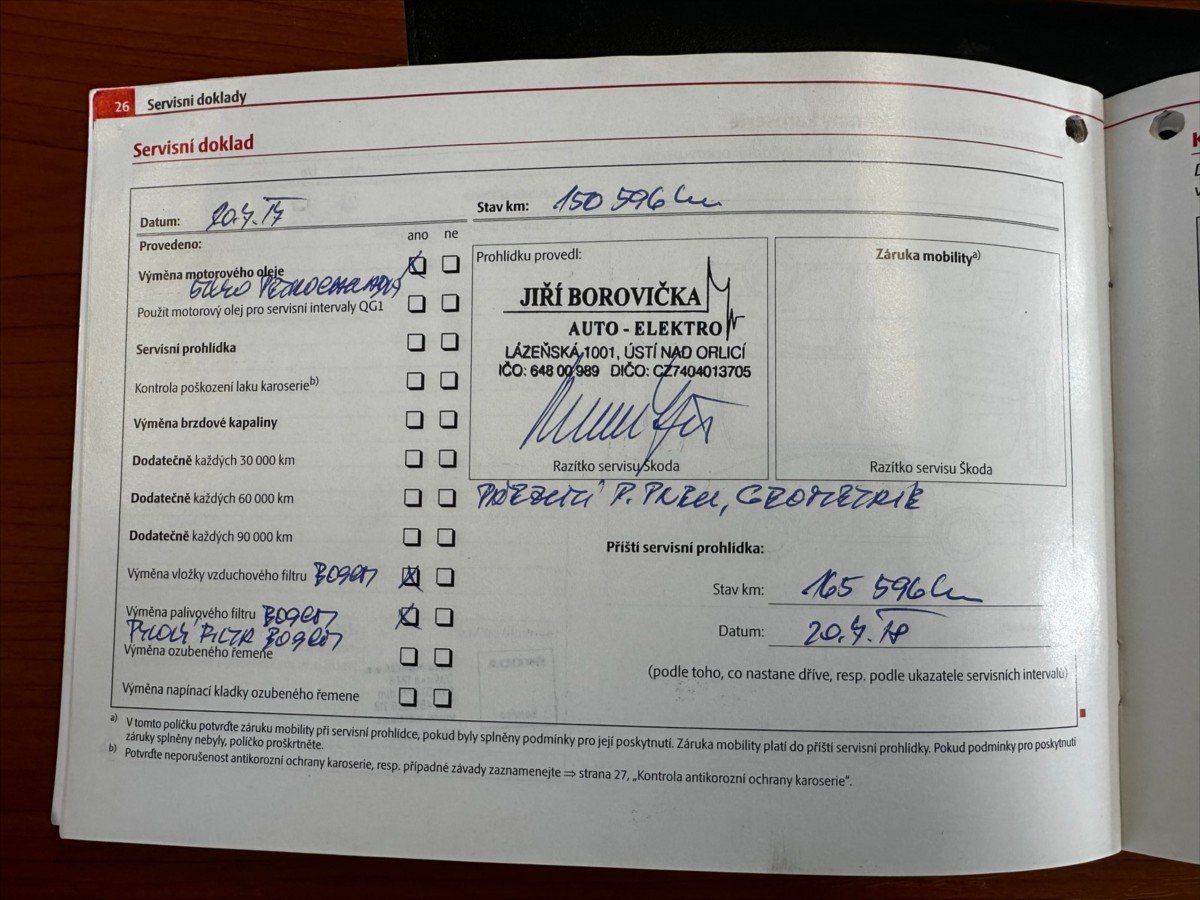 26 Servisní doklady
Servisní doklad
Datum: 20.4.17
Stav km: 150 596 km
ano ne
Provedeno:
Výměna motorového oleje
EURO PETROCHEMICAL
Použit motorový olej pro servisní intervaly QG1
Servisní prohlídka
Kontrola poškození laku karoserie b)
Výměna brzdové kapaliny
Dodatečně každých 30 000 km
Dodatečně každých 60 000 km
Dodatečně každých 90 000 km
Výměna vložky vzduchového filtru BOSCH
Výměna palivového filtru BOSCH
PYLOVÝ FILTR BOSCH
Výměna ozubeného řemene
Výměna napínací kladky ozubeného řemene
Prohlídku provedl:
JIŘÍ BOROVIČKA
AUTO - ELEKTRO
LÁZEŇSKÁ 1001, ÚSTÍ NAD ORLICÍ
IČO: 648 00 989 DIČO: CZ7404013705
Razítko servisu Škoda
Záruka mobility a)
Razítko servisu Škoda
GEOMETRIE
Příští servisní prohlídka:
Stav km: 165 596 km
Datum: 20.4.18
(podle toho, co nastane dříve, resp. podle ukazatele servisních intervalů)
a) V tomto políčku potvrďte záruku mobility při servisní prohlídce, pokud byly splněny podmínky pro její poskytnutí. Záruka mobility platí do příští servisní prohlídky. Pokud podmínky pro poskytnutí
záruky splněny nebyly, políčko proškrtněte.
b) Potvrďte neporušenost antikorozní ochrany karoserie, resp. případné závady zaznamenejte ⇒ strana 27, „Kontrola antikorozní ochrany karoserie“.